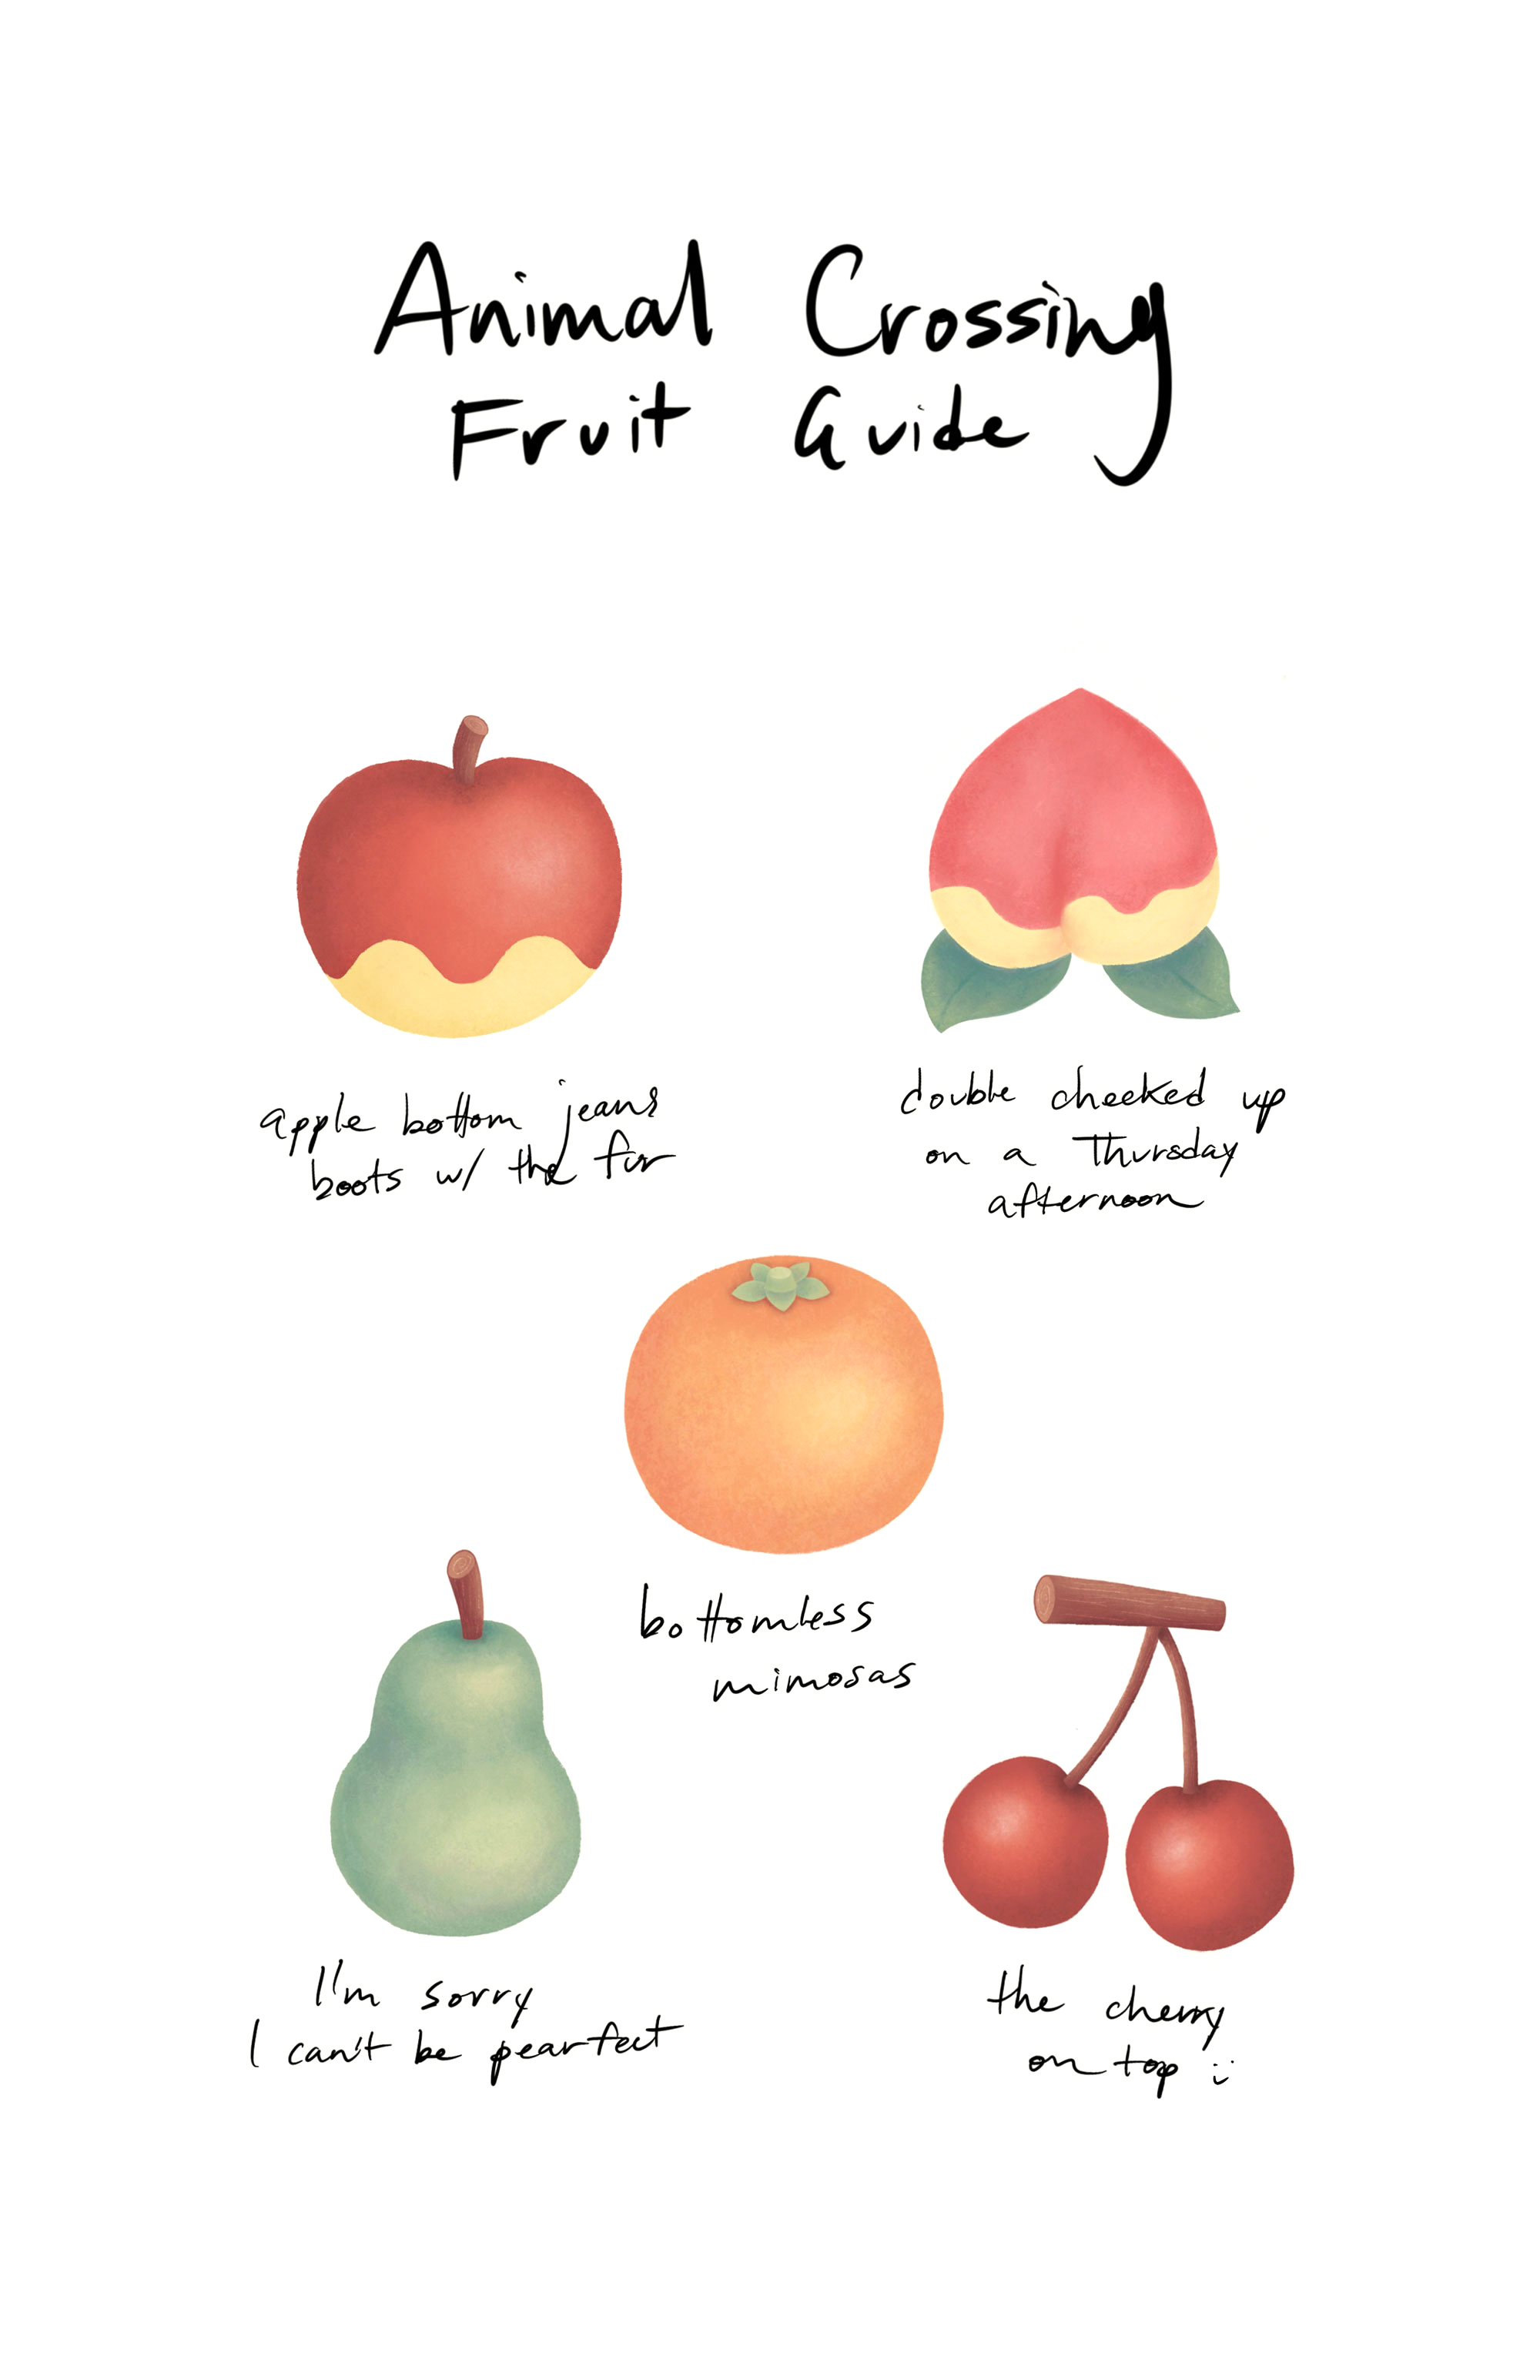 Animal Crossing
Fruit Guide
apple bottom jeans
boots w/ the fur
double cheeked up
on a Thursday
afternoon
bottomless
mimosas
I'm sorry
I can't be pearfect
the cherry
on top :)